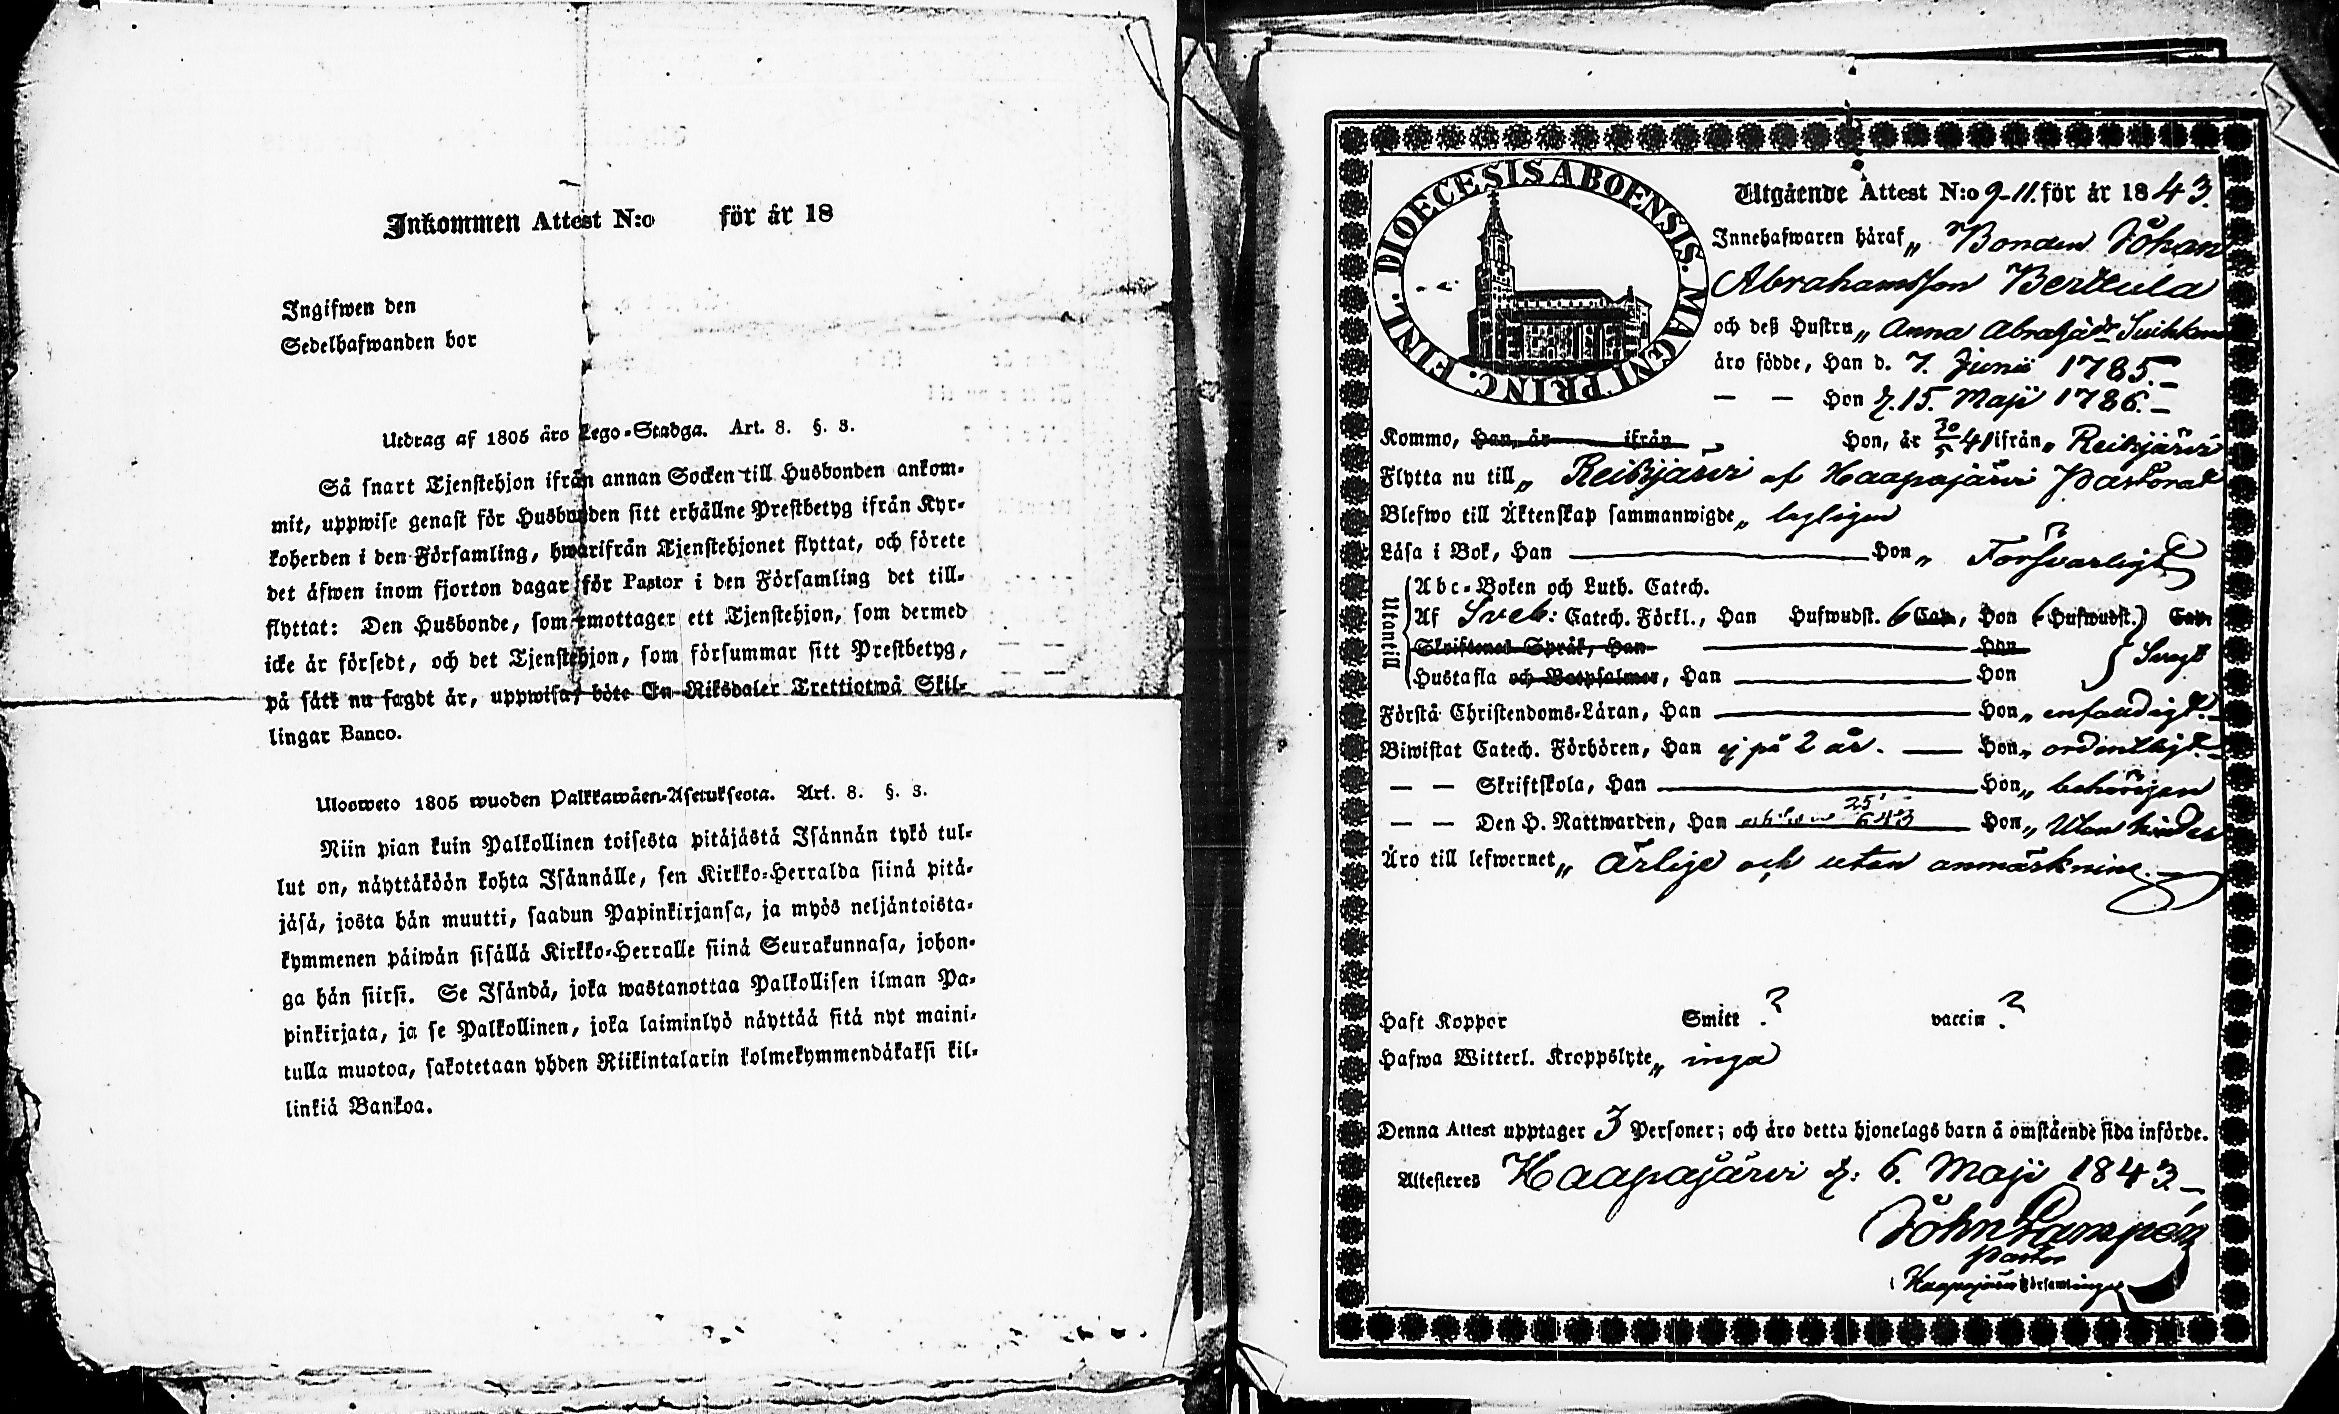 Inkommen Attest N:o för år 18
Ingifwen den
Sedelhafwanden bor
Utdrag af 1805 års Lego-Stadga. Art. 8. §. 3.
Så snart Tjenstehjon ifrån annan Socken till Husbonden ankom-
mit, uppwise genast för Husbonden sitt erhållne Prestbetyg ifrån Kyr-
koherden i den Församling, hwarifrån Tjenstehjonet flyttat, och förete
det äfwen inom fjorton dagar för Pastor i den Församling det till-
flyttat: Den Husbonde, som emottager ett Tjenstehjon, som dermed
icke är försedt, och det Tjenstehjon, som försummar sitt Prestbetyg,
på sätt nu sagdt är, uppwisa, böte En Riksdaler Trettiotwå Skil-
lingar Banco.
Ulosweto 1805 wuoden Palkkawäen-Asetuksesta. Art. 8. §. 3.
Niin pian kuin Palkollinen toisesta pitäjästä Isännän tykö tul-
lut on, näyttäköön kohta Isännälle, sen Kirkko-Herralda siinä pitä-
jäsä, josta hän muutti, saadun Papinkirjansa, ja myös neljäntoista-
kymmenen päiwän sisällä Kirkko-Herralle siinä Seurakunnasa, johon-
ga hän siirsi. Se Isändä, joka wastanottaa Palkollisen ilman Pa-
pinkirjata, ja se Palkollinen, joka laiminlyö näyttää sitä nyt maini-
tulla muotoa, sakotetaan yhden Riikintalarin kolmekymmendäkaksi kil-
linkiä Bankoa.
DIOECESIS ABOENSIS. MAGNI PRINC. FINL.
Utgående Attest N:o 9-11. för år 1843.
Innehafwaren häraf„ Bonden Johan
Abrahamsson Berttula
och deß Hustru„ Anna Abrahãdr
äro födde, Han d. 7. Junii 1785.–
— — Hon d. 15. Maji 1786.–
Kommo, Han, år ifrån „ Hon, år 30/5 41 ifrån„ Reisjärvi
Flytta nu till„ Reisjärvi af Haapajärvi Pastorat
Blefwo till Äktenskap sammanwigde„ lagligen
Läsa i Bok, Han — Hon„ Försvarligt
Utantill
Abc-Boken och Luth. Catech.
Af Sveb: Catech. Förkl., Han Hufwudst. 6 Cap., Hon 6 Hufwudst. Cap.
Skriftenes Språk, Han — Hon
Hustafla och Botpsalmer, Han — Hon Svagt
Förstå Christendoms-Läran, Han — Hon„ enfaldigt.–
Biwistat Catech. Förhören, Han ej på 2 år. — Hon„ ordentligt.–
— — Skriftskola, Han — Hon„ behörigen
— — Den H. Nattwarden, Han 25/ 43 Hon„ Utan hinder
Äro till lefwernet„ ärlige och utan anmärkning.–
Haft Koppor Smitt ? vaccin ?
Hafwa Witterl. Kroppslyte„ inga
Denna Attest upptager 3 Personer; och äro detta hjonelags barn å omstående sida införde.
Attesteres Haapajärvi d: 6. Maji 1843.–
Joh. Lampén
Pastor
i Haapajärvi Församlinga